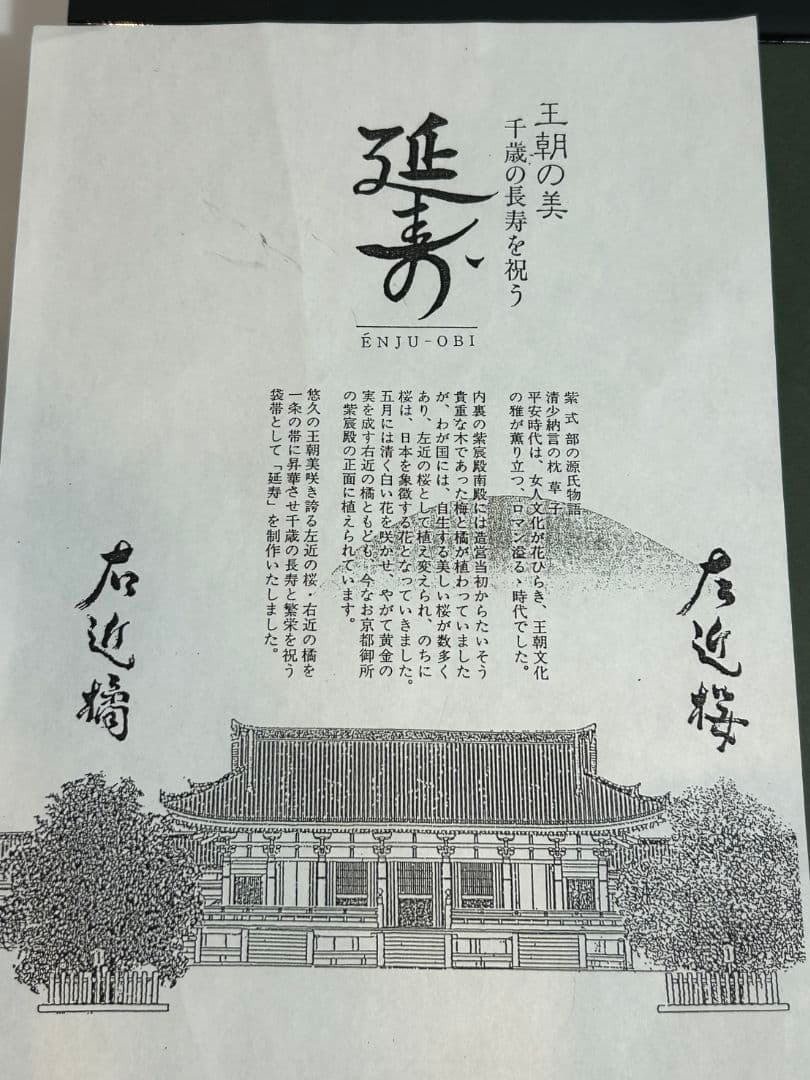 王朝の美
千歳の長寿を祝う
延寿
ÉNJU-OBI
紫式部の源氏物語
清少納言の枕草子
平安時代は、女人文化が花ひらき、王朝文化
の雅が薫り立つ、ロマン溢るゝ時代でした。
内裏の紫宸殿南殿には造営当初からたいそう
貴重な木であった梅と橘が植わっていました
が、わが国には、自生する美しい桜が数多く
あり、左近の桜として植え変えられ、のちに
桜は、日本を象徴する花となっていきました。
五月には清く白い花を咲かせ、やがて黄金の
実を成す右近の橘ともども、今なお京都御所
の紫宸殿の正面に植えられています。
悠久の王朝美咲き誇る左近の桜・右近の橘を
一条の帯に昇華させ千歳の長寿と繁栄を祝う
袋帯として「延寿」を制作いたしました。
左近桜
右近橘